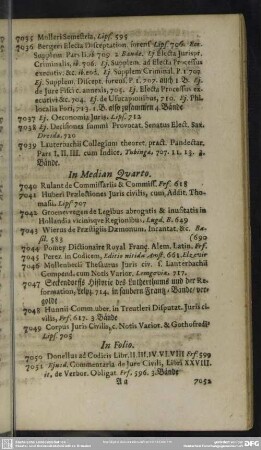 7035 Molleri Semestria, Lips. 595
7036 Bergeri Electa Disceptation. forens. Lips. 706. Ej.
Supplem. Pars I. ib. 709. 2 Bände. Ej. Electa Jurispr.
Criminalis, ib. 706. Ej. Supplem. ad Electa Processus
executiv. &c. ib. eod. Ej. Supplem. Criminal. P. I. 712.
Ej. Supplem. Disceptation. forens. P. I. 707.
de Jure Fisci c. annexis, 705. Ej. Electa de Jure Proces-
executivi &c. 704. Ej. de Usucapionibus, 710. Ej. Phi-
localia Fori, 713.
7037 Ej. Oeconomia Juris. Lips. 712
7038 Ej. Decisiones summi Provocat. Senatus Elect. Sax.
Dresda, 720
7039 Lauterbachii Collegium theoret. pract. Pandectar.
Pars I, II, III. cum Indice. Tubinga, 707. 11. 13. 4.
Bände.
In Median Quarto.
7040 Rulant de Commissariis & Commiss. Frf. 618
7041 Huberi Prælectiones Juris civilis, cum Addit. Tho-
masii. Lips. 707
7042 Groenevvegen de Legibus abrogatis & inusitatis in
Hollandia vicinisque Regionibus. Lugd. B. 649
7043 Wierus de Præstigiis Dæmonum, Incantat. &c. Ba-
sil. 583
7044 Pomey Dictionaire Royal Franç. Alem. Latin. Frf.
(690
7045 Perez. in Codicem, Editio nitida Amst. 661. Elzevir
7046 Mollenbecii Thesaurus Juris civ. f. Lauterbachii
Compend. cum Notis Varior. Lemgovia. 717.
7047 Seckendorfs Historie des Lutherthums und der Re-
formation, Leipz. 714. in saubern Frantz-Bande/ ver-
goldt
7048 Hunnii Comm. uber. in Treutleri Disputat. Juris ci-
vilis, Frf. 617. 3 Bände
7049 Corpus Juris Civilis, c. Notis Varior. & Gothofredi
Lips. 705
In Folio.
7050 Donellus ad Codicis Libr. II. III. IV. VI. VIII Frf 599
7051 Ejusd. Commentaria de Jure Civili, Libri XXVIII.
it. de Verbor. Obligat. Frf. 596. 3. Bände
Aa
7052